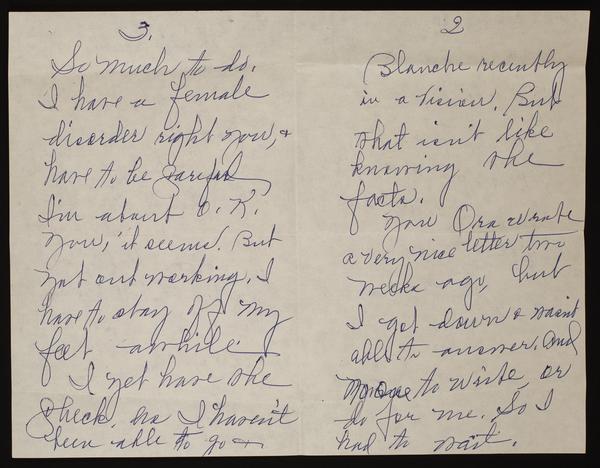 2
Blanche recently
in a vision. But
that isn't like
knowing the
facts.
Now Ora wrote
a very nice letter two
weeks ago, but
I got down & wasn't
able to answer. And
no one to write, or
do for me. So I
had to wait.
3.
So much to do.
I have a female
disorder right now, &
have to be careful
I'm about O.K.
now, it seems. But
not out working. I
have to stay off my
feet awhile.
I yet have the
check, as I haven't
been able to go &